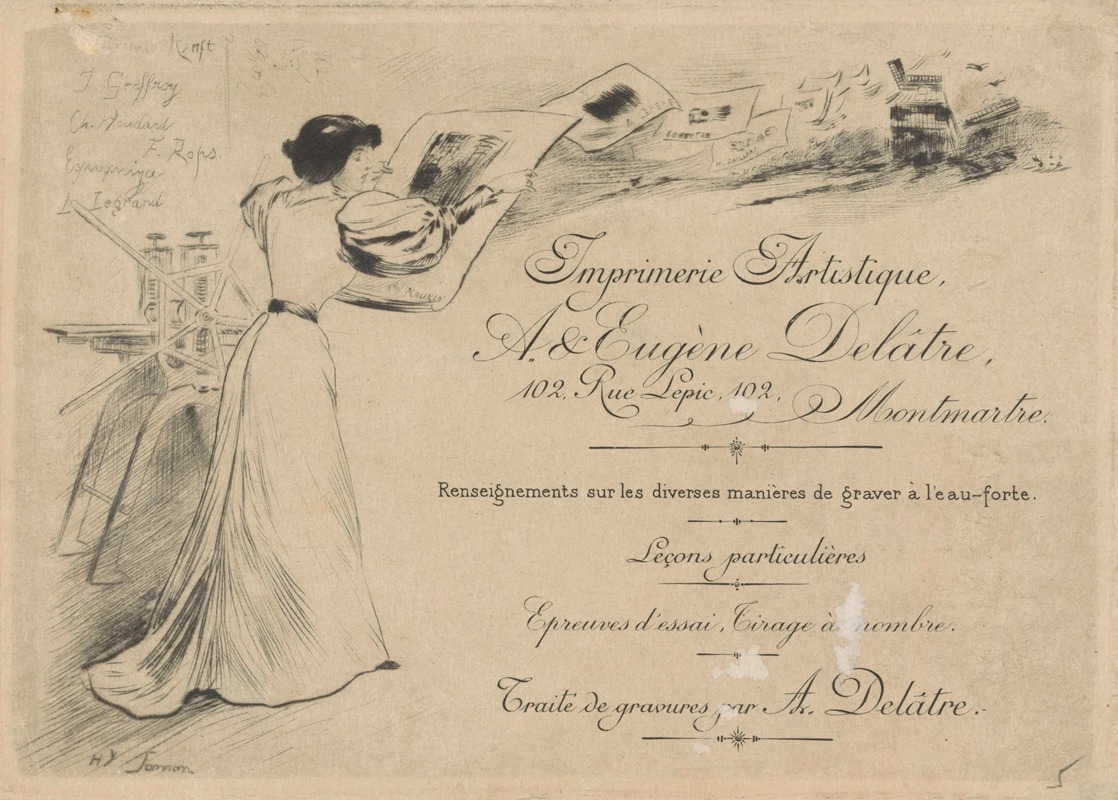 Kenft
J Geoffroy
Ch. Houdard
F. Rops
L. Legrand
MAURIN
Imprimerie Artistique,
A. & Eugène Delâtre,
102, Rue Lepic, 102, Montmartre.
Renseignements sur les diverses manières de graver à l'eau-forte.
Leçons particulières
Epreuves d'essai, Tirage à nombre.
Traité de gravures par A. Delâtre.
Hy Somm